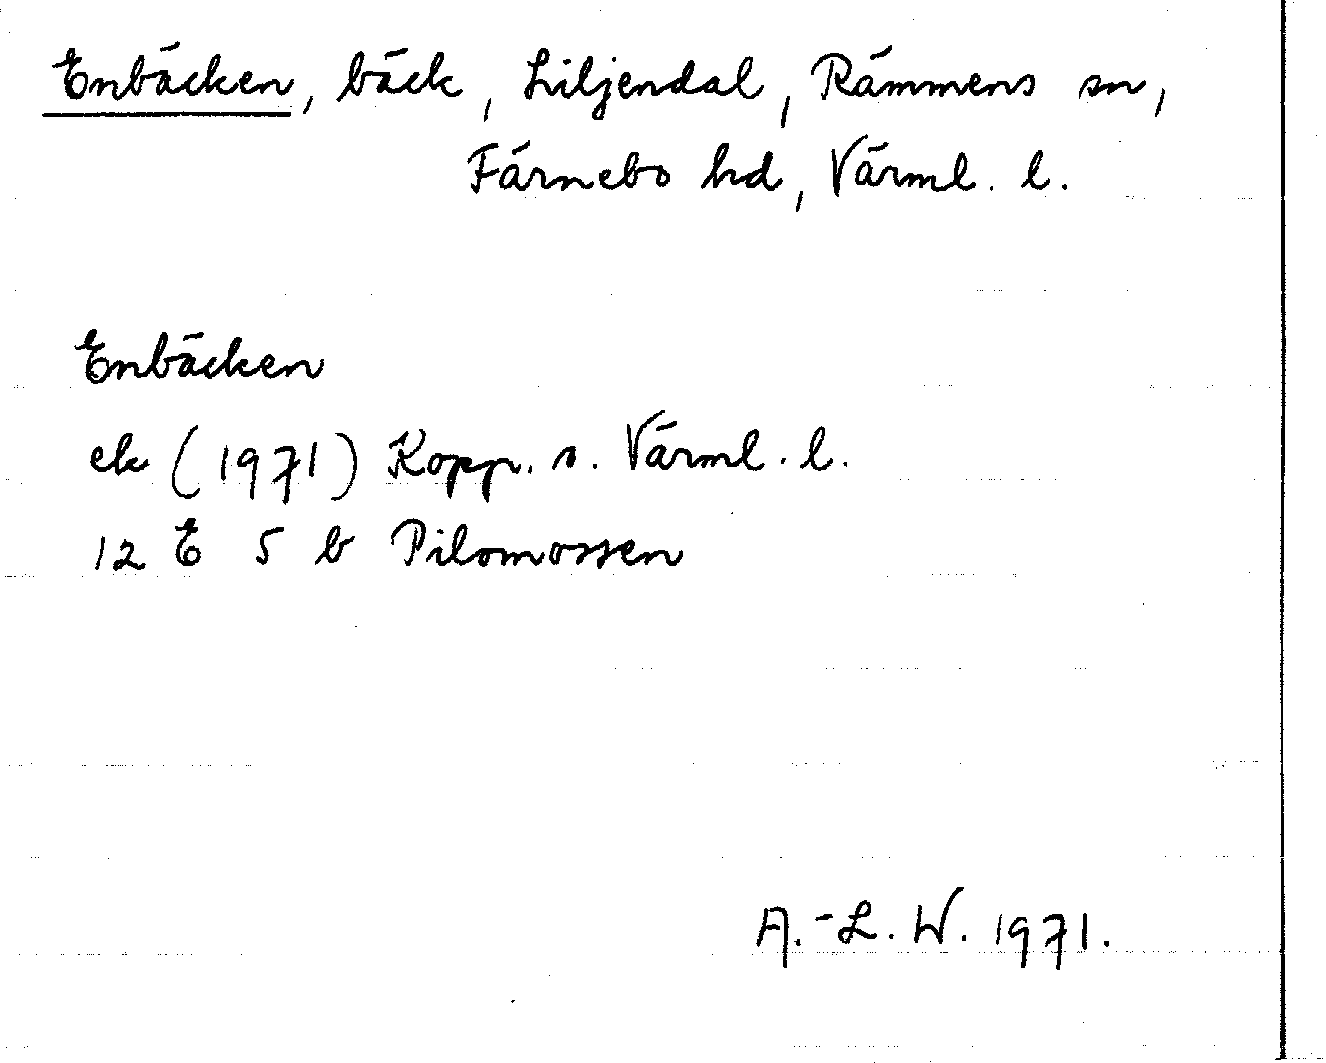 Enbäcken, bäck, Liljendal, Rämmens sn,
Färnebo hd, Värml. l.
Enbäcken
ek (1971) Kopp. o. Värml. l.
12 E 5 b Pilomossen
A.-L. W. 1971.